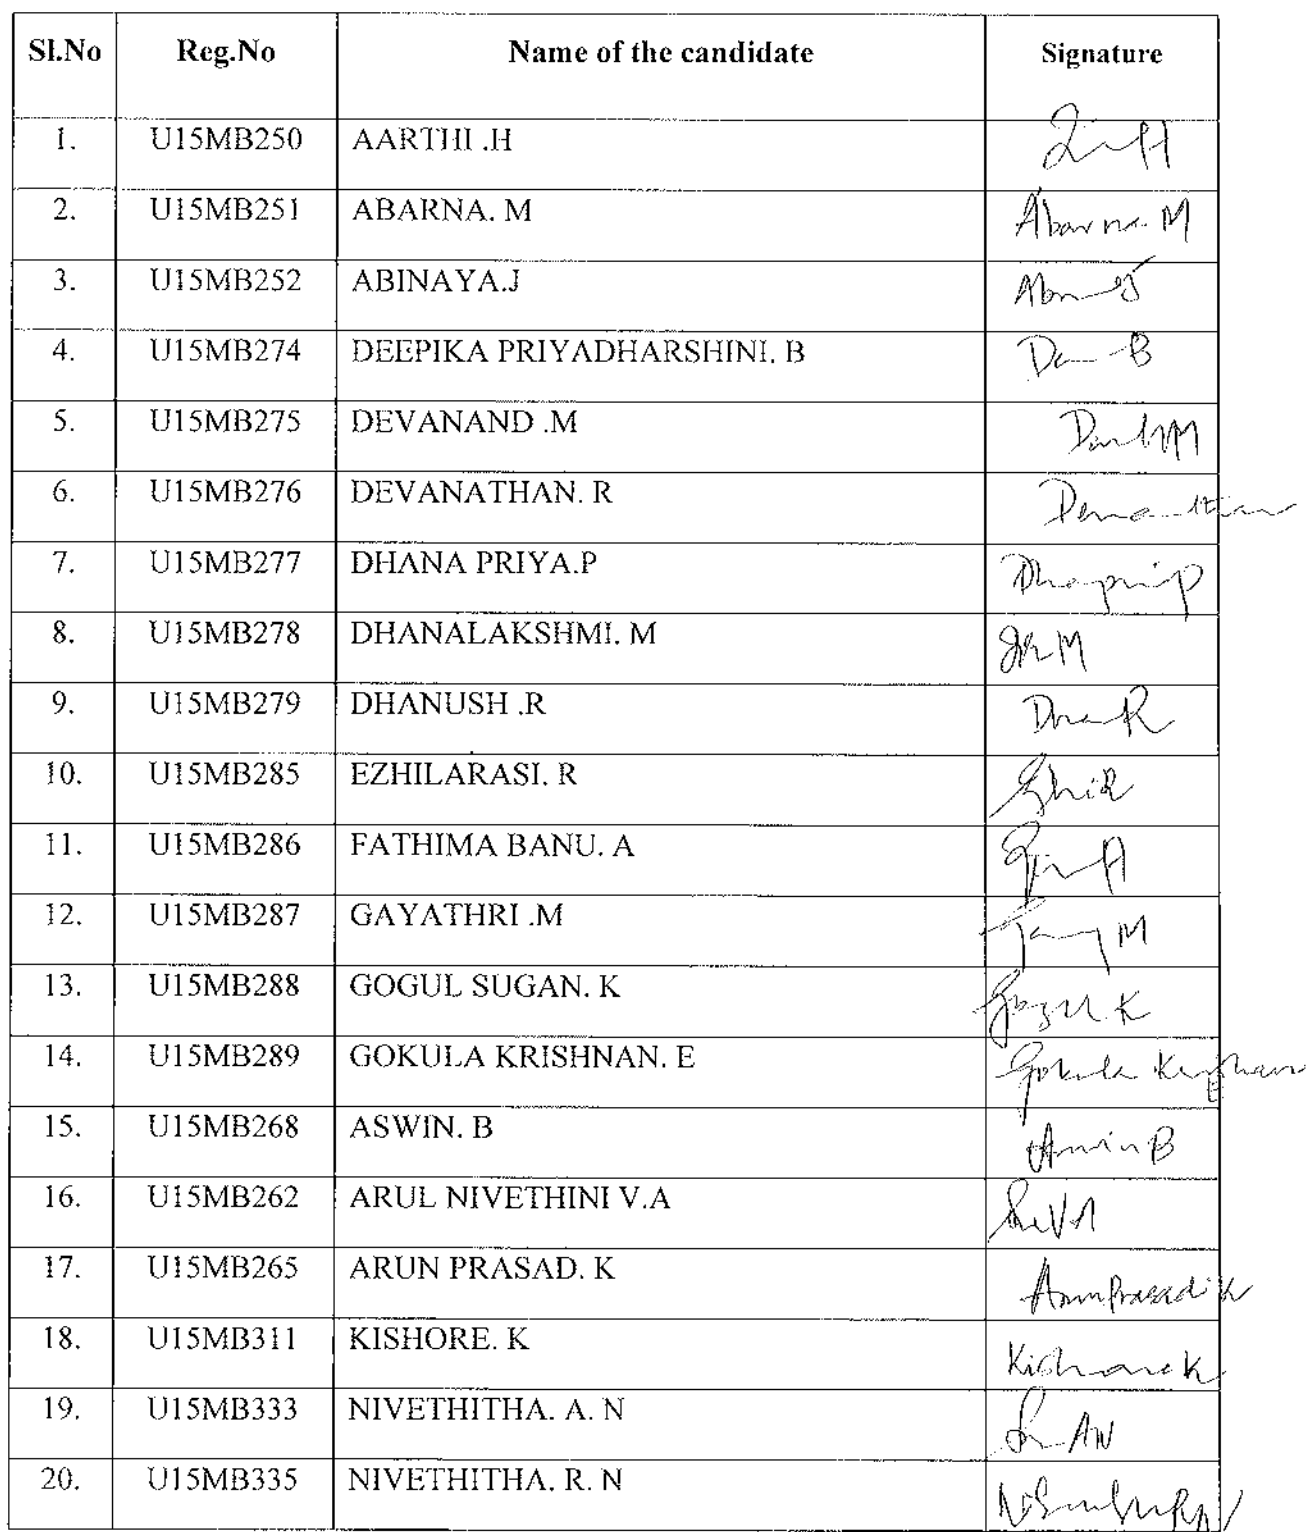 Sl.No Reg.No Name of the candidate Signature
1. U15MB250 AARTHI .H
2. U15MB251 ABARNA. M Abarna. M
3. U15MB252 ABINAYA.J
4. U15MB274 DEEPIKA PRIYADHARSHINI. B
5. U15MB275 DEVANAND .M
6. U15MB276 DEVANATHAN. R
7. U15MB277 DHANA PRIYA.P
8. U15MB278 DHANALAKSHMI. M
9. U15MB279 DHANUSH .R
10. U15MB285 EZHILARASI. R
11. U15MB286 FATHIMA BANU. A
12. U15MB287 GAYATHRI .M
13. U15MB288 GOGUL SUGAN. K Gogul K
14. U15MB289 GOKULA KRISHNAN. E Gokula Krishnan
15. U15MB268 ASWIN. B
16. U15MB262 ARUL NIVETHINI V.A
17. U15MB265 ARUN PRASAD. K ArunPrasad.K
18. U15MB311 KISHORE. K Kishore K
19. U15MB333 NIVETHITHA. A. N
20. U15MB335 NIVETHITHA. R. N